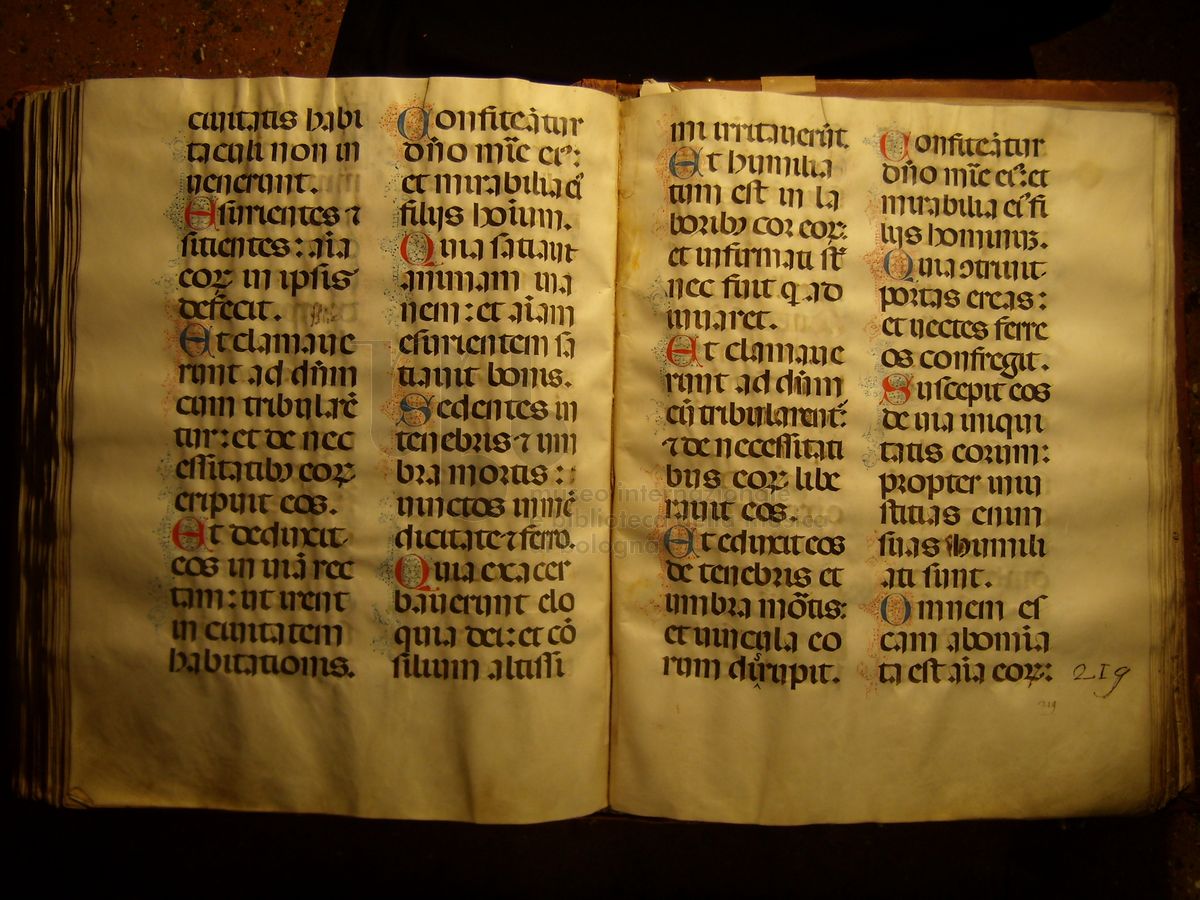 ciuitatis habi
taculi non in
uenerunt.
Esurientes ⁊
sitientes: aīa
coꝝ in ipsis
defecit.
Et clamaue
runt ad dn̄m
cum tribularē
tur: et de nec
essitatibꝫ coꝝ
eripuit eos.
Et deduxit
eos in uiā rec
tam: ut irent
in ciuitatem
habitationis.
Confiteātur
dn̄o mīe ei᷒:
et mirabilia ei᷒
filijs hoīum.
Quia satiauit
animam ina
nem: et aīam
esurientem sa
tiauit bonis.
Sedentes in
tenebris ⁊ um
bra mortis:
uinctos in mē
dicitate ⁊ ferro.
Quia exacer
bauerunt elo
quia dei: et cō
silium altissi
mi irritauerūt.
Et humilia
tum est in la
boribꝫ cor eoꝝ:
et infirmati st̄
nec fuit q ad
iuuaret.
Et clamaue
runt ad dn̄m
cū tribularent᷑:
⁊ de necessitati
bus eoꝝ libe
rauit eos.
Et eduxit eos
de tenebris et
umbra mōtis:
et uincula eo
rum dirupit.
Confiteātur
dn̄o mīe ei᷒: et
mirabilia ei᷒ fi
lijs hominuꝫ.
Quia ɔtriuit
portas ereas:
et uectes ferre
os confregit.
Suscepit eos
de uia iniqui
tatis eorum:
propter iniu
stitias enim
suas humili
ati sunt.
Omnem es
cam abomīa
ta est aīa eoꝝ:
219
219
museo internazionale
biblioteca della musica
bologna